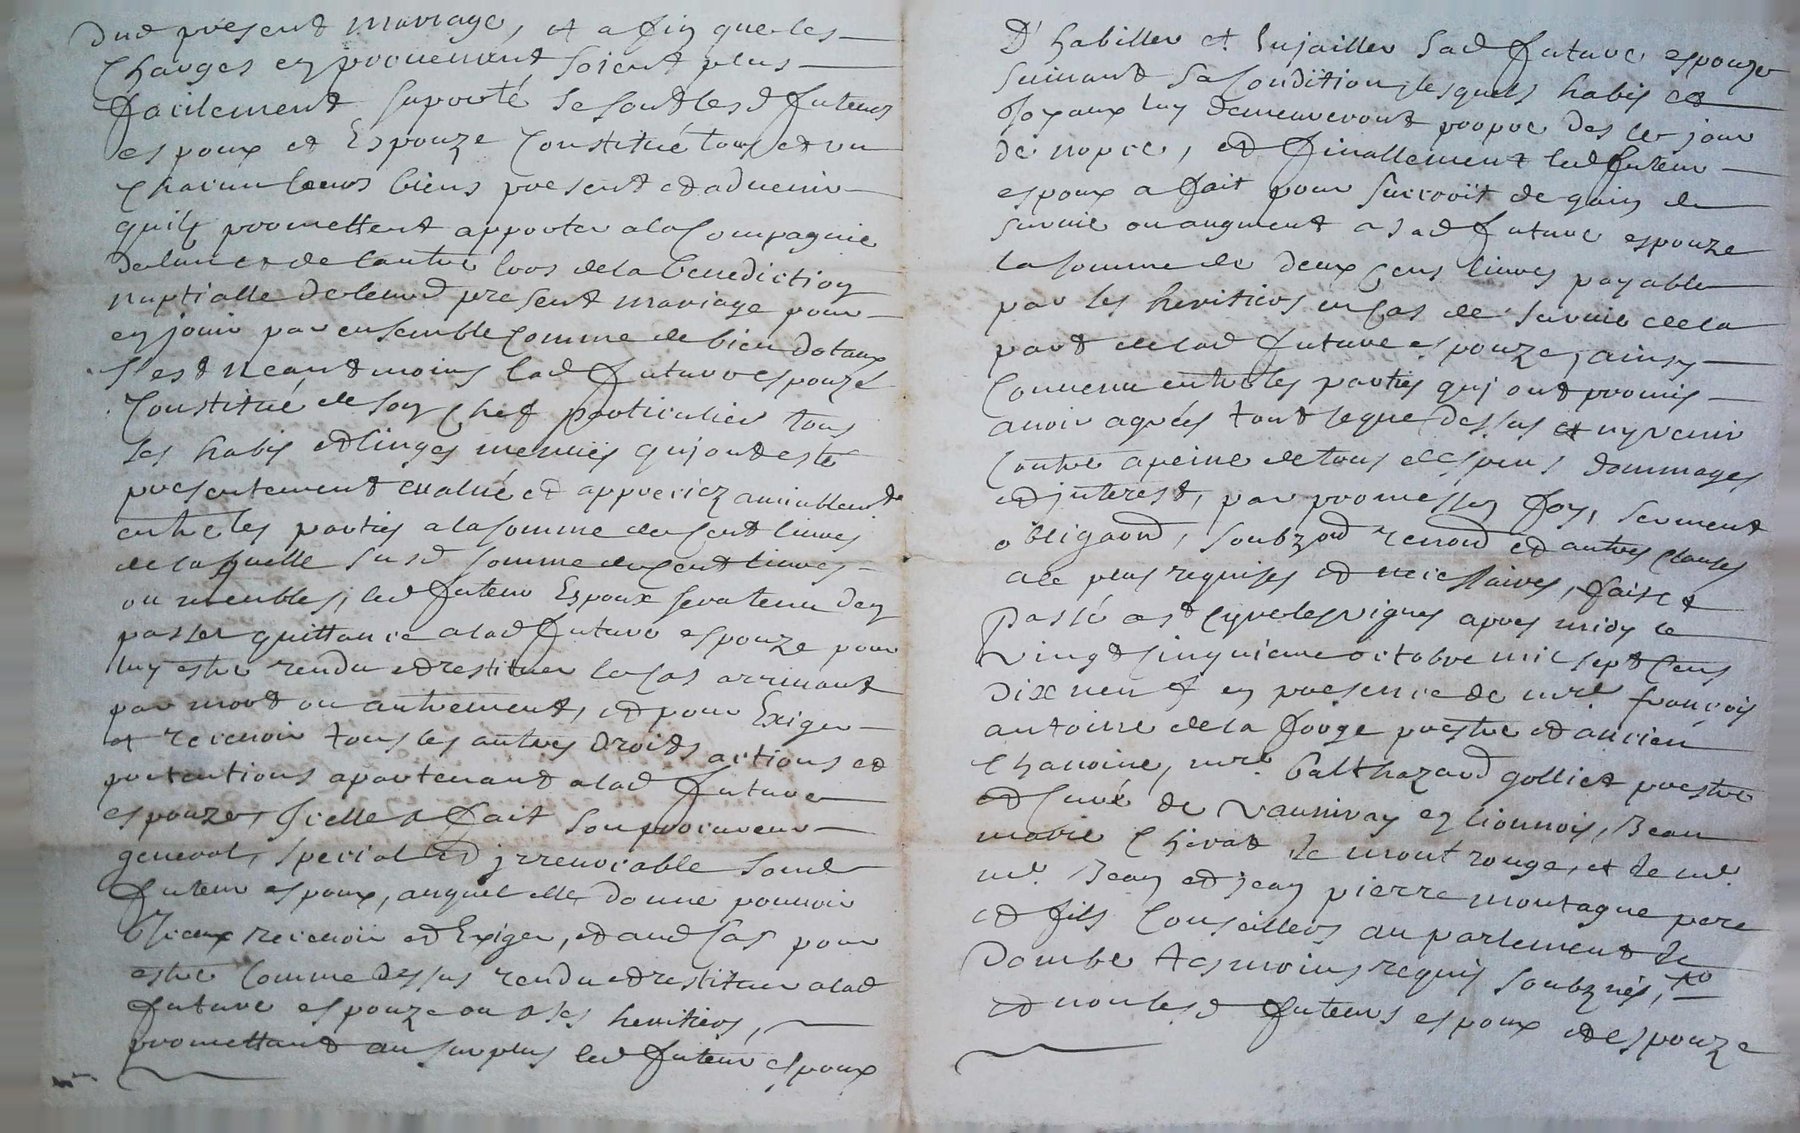 dud present mariage, et afin que les
charges en provenant soient plus
facilement suporté se sont lesd futurs
espoux et Espouze constitué tous et un
chacun leurs biens present et advenir
quils promettent apporter a la compagnie
de lun et de lautre lors de la benediction
nuptialle de leurd present mariage pour
en jouir par ensemble comme de bien dotaux
sest neantmoins lad future espouze
constitué de son chef particulier tous
ses habis et linges menus qui ont esté
presentement evalué et appreciez amiablemt
entre les parties a la somme de cent livres
de laquelle susd somme de cent livres
ou meubles, led futeur Espoux sera tenu den
passer quittance a lad future espouze pour
luy estre rendu et restituer le cas arrivant
par mort ou autrement, et pour Exiger
et recevoir tous les autres droits actions et
pretentions apartenant a lad future
espouze, Icelle a fait son procureur
general, special et irrevocable sond
futeur espoux, auquel elle donne pouvoir
diceux recevoir et Exiger, et aud cas pour
estre comme dessus rendu et restituer a lad
future espouze ou a ses heritiers,
promettant au surplus led futeur espoux
D'habiller et Enjailler sad future espouze
suivant sa condition, lesquels habis et
joyaux luy demeureront propre des le jour
de nopce, et finallement led futeur
espoux a fait pour surcroit de gain de
survie ou augment a sad future espouze
la somme de deux cens livres payable
par les heritiers en cas de survie de la
part de lad future espouze, ainsy
convenu entre les parties qui ont promis
avoir agréés tout ce que dessus et ny venir
contre a peine de tous despens dommages
et interest, par promesses foy, serment
obligaond, soubzond renond et autres clauses
a ce plus requises et necessaires, fait et
passé a st cyre les vignes apres midy le
vingt cinquieme octobre mil sept cens
dix neuf en presence de mre françois
antoine de la forge prestre et ancien
chanoine, mre balthazard golliet prestre
et curé de Vaunivay en lionnois, Jean
marie chirat de montrouge, et de mrs
Jean et jean pierre montagne pere
et fils conseillers au parlement de
Dombe tesmoins requis soubznés,
et non lesd futeurs espoux et espouze